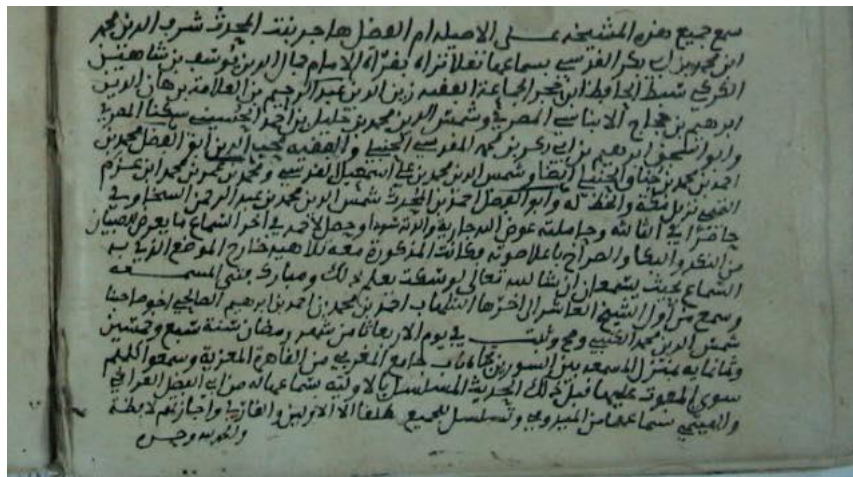 سمع جميع هذه المشيخة على الاصيله ام الفضل هاجر بنت المحدث شرف الدين محمد
ابن محمد بن ابي بكر القدسي بسماعها نقلا تراه بقراة الامام جمال الدين يوسف بن شاهين
الكركي سبط الحافظ ابن حجر الجماعة الفقيه زين الدين عبد الرحيم بن العلامة برهان الدين
ابرهيم بن حجاج الابناسي المصري وشمس الدين محمد بن خليل بن احمد الحسيني سكنا المصري
وابو اسحق ابرهيم بن ابي بكر بن محمد المقدسي الحنبلي والفقيه محب الدين ابو الفضل محمد بن
احمد بن محمد بن جناق الحنبلي ايضا وشمس الدين محمد بن علي اسمعيل القدسي ومحمد بن محمد بن محمد ابن عزم
التميمي نزيل مكة والخط له وابو الفضل احمد بن المحدث شمس الدين محمد بن عبد الرحمن السخاوي
حاضرا في الثالثة وحاملته عوض الله جارية والدته سودا وحصل لاحمد في اخر السماع ما يعرض للصبيان
من النكد والبكا والصراخ باعلا صوته وكانت المذكورة معه تلاهيه خارج الموضع الذي به
السماع بحيث يسمعان ان شا الله تعالى لو سكت يعلم ذلك ومبارك فتى المسمعه
وسمع من اول الشيخ العاشر الى اخرها الشهاب احمد بن محمد بن احمد بن ابرهيم الصالحي اخو صاحبنا
شمس الدين محمد الحنبلي وصح وثبت في يوم الاربعا ثامن شهر رمضان سنة سبع وخمسين
وثمانمايه بمنزل المسمعه بين السورين تجاه باب جامع المغربي من القاهرة المعزية وسمعوا كلهم
سوى المعوق عليهما قبل ذلك الحديث المسلسل بالاولية بسماعها له من ابي الفضل العراقي
والهيثمي بسماعهما من الميدومي وتسلسل للجميع خلفا الا الاولين واجازتهم لافظة
والحمد لله وحده